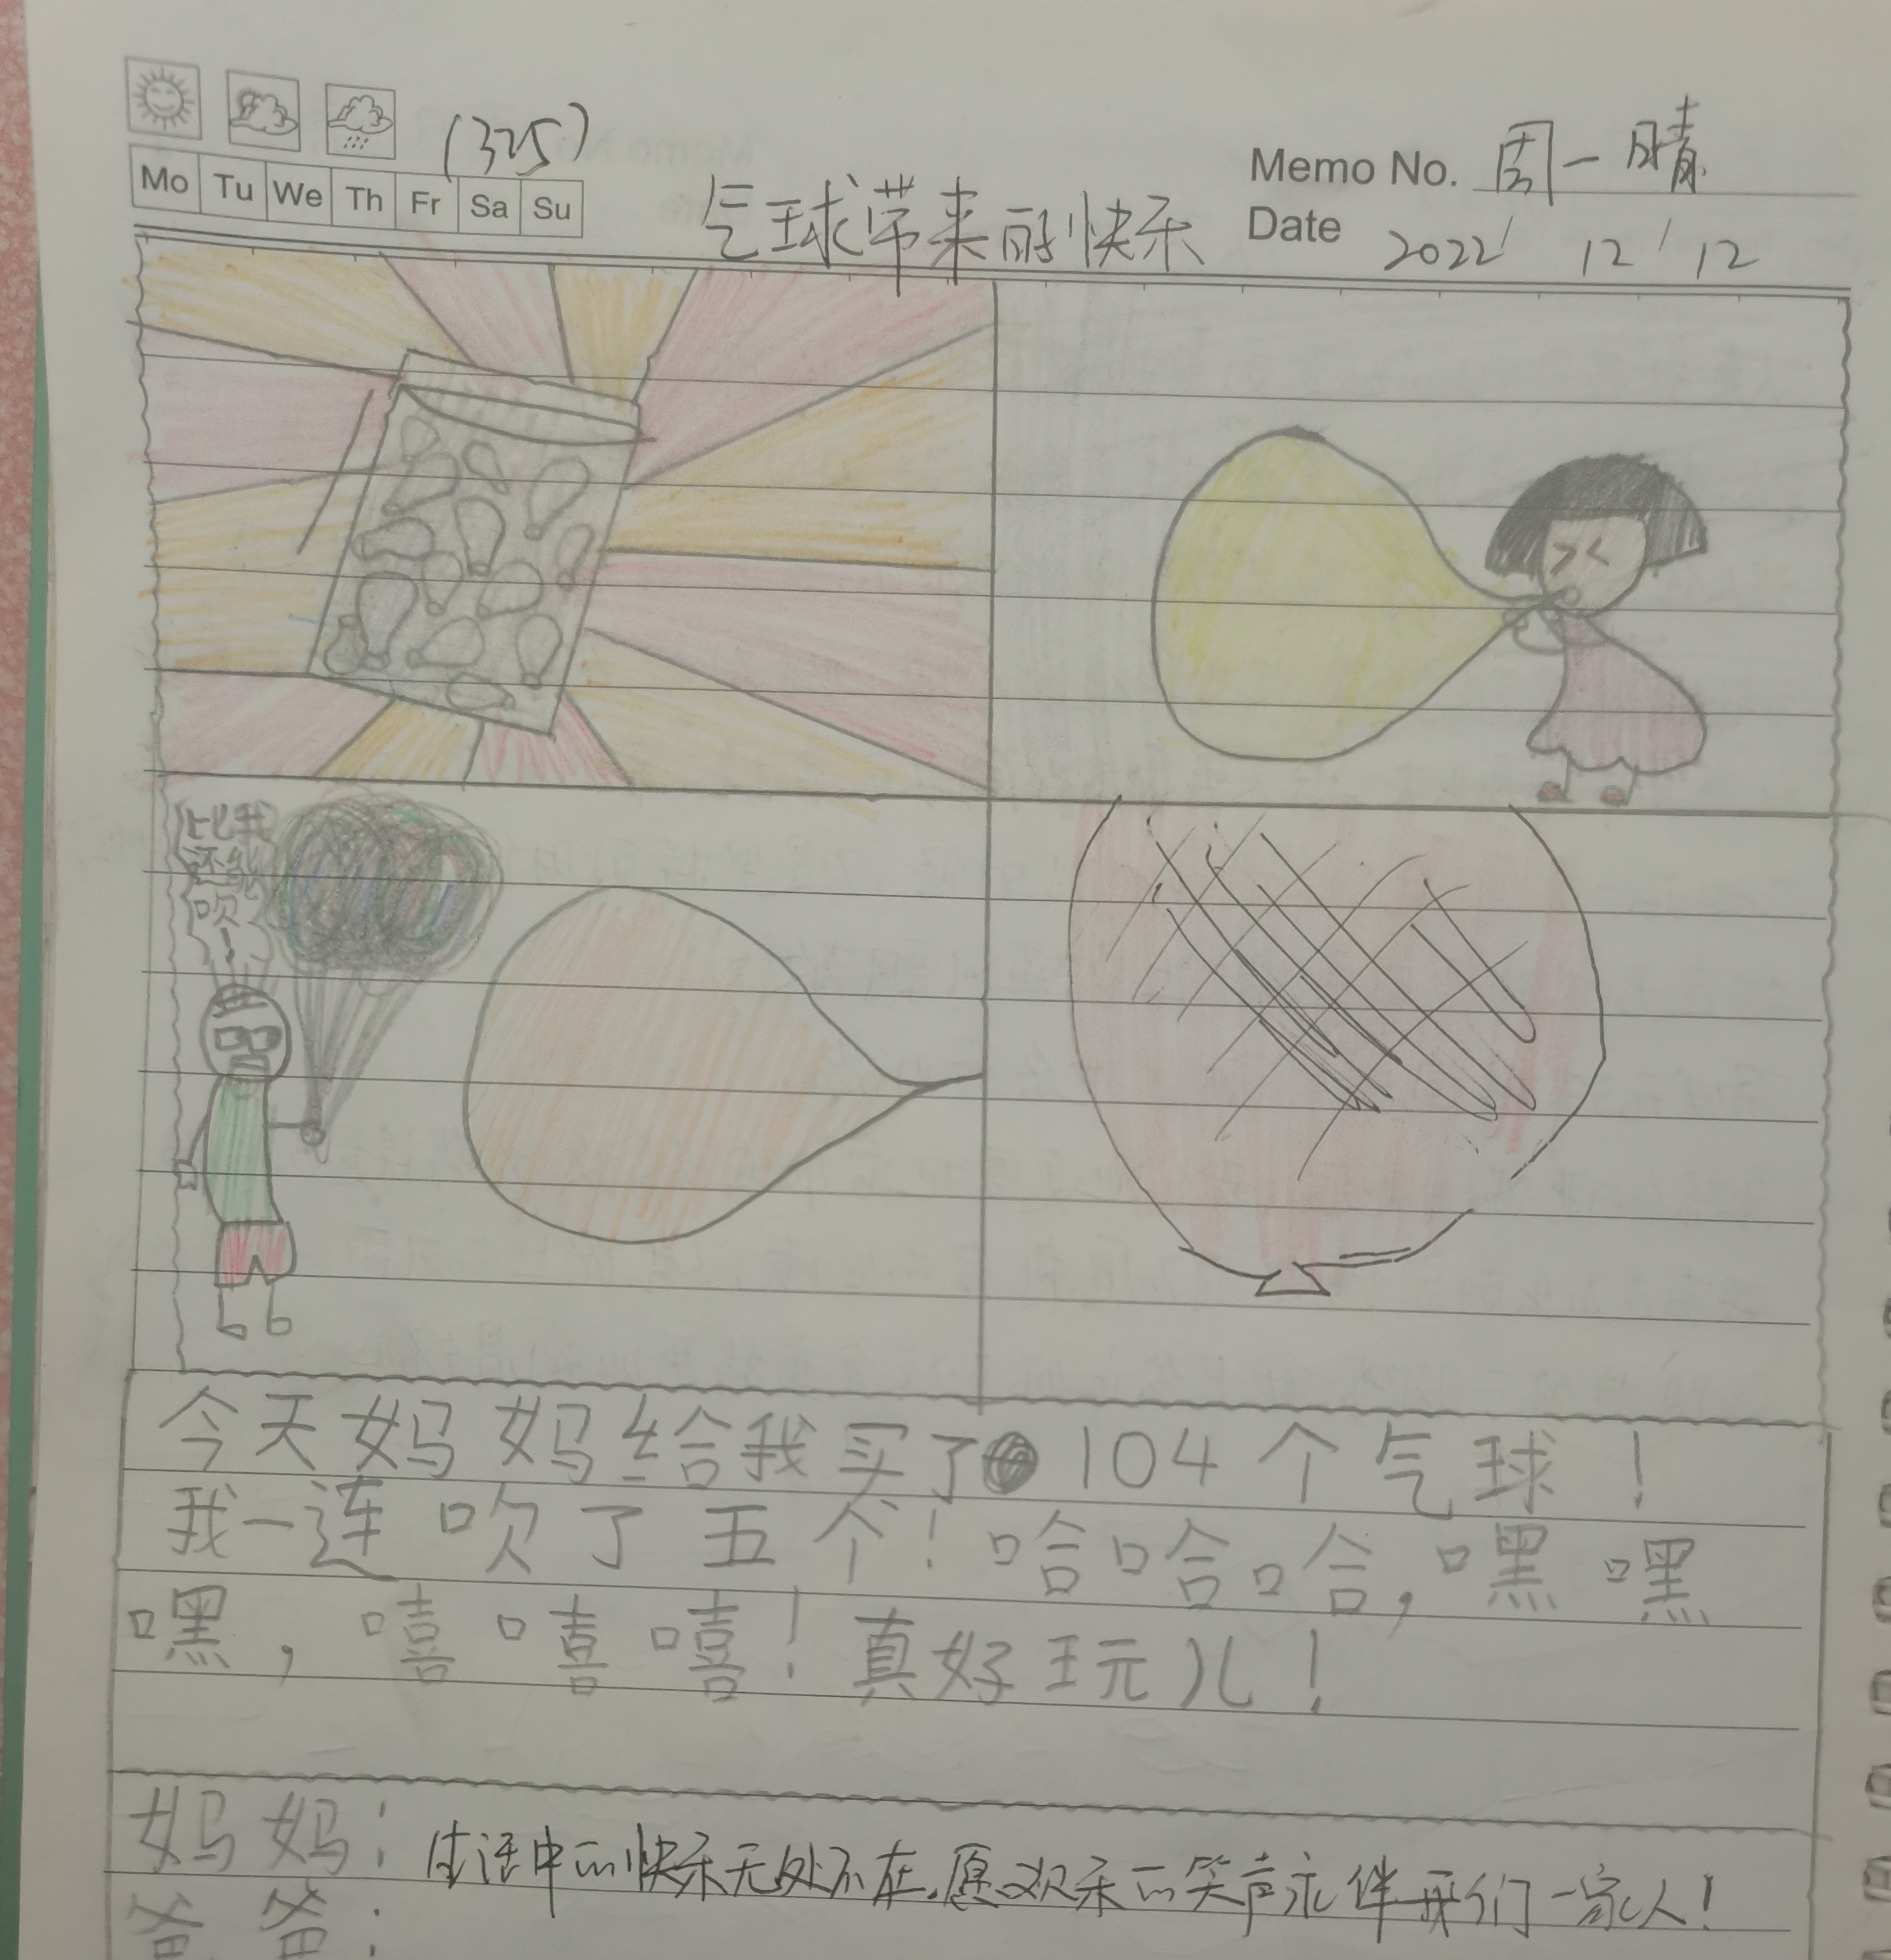 (325)
Memo No. 周一晴
Mo Tu We Th Fr Sa Su
气球带来的快乐
Date 2022/ 12/ 12
比我
还能
吹!
今天妈妈给我买了104个气球!
我一连吹了五个!哈哈哈,嘿嘿
嘿,嘻嘻嘻!真好玩儿!
妈妈:生活中的快乐无处不在,愿欢乐的笑声永伴我们一家人!
爸爸: